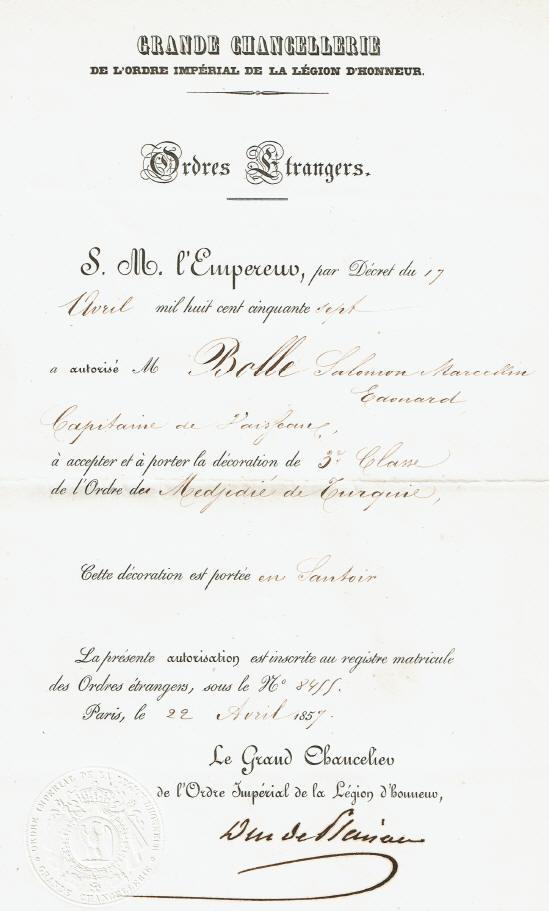 GRANDE CHANCELLERIE
DE L'ORDRE IMPÉRIAL DE LA LÉGION D'HONNEUR.
Ordres Étrangers.
S. M. l'Empereur, par Décret du 17
Avril mil huit cent cinquante sept
a autorisé M Bolle Salomon Marcellin
Edouard
Capitaine de Vaisseau,
à accepter et à porter la décoration de 3e Classe
de l'Ordre du Medjidié de Turquie,
Cette décoration est portée en Sautoir
La présente autorisation est inscrite au registre matricule
des Ordres étrangers, sous le No 8455.
Paris, le 22 Avril 1857.
Le Grand Chancelier
de l'Ordre Impérial de la Légion d'honneur,
Duc de Plaisance